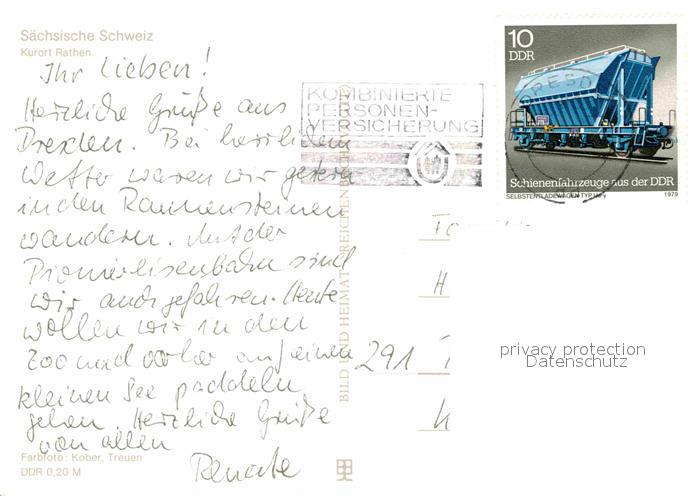 Sächsische Schweiz
Kurort Rathen
Ihr Lieben!
Herzliche Grüße aus
Dresden. Bei herrlichem
Wetter waren wir gestern
in den Rauensteinen
wandern. Mit der
Pioniereisenbahn sind
wir auch gefahren. Heute
wollen wir in den
Zoo und vorher auf einen
kleinen See paddeln
gehen. Herzliche Grüße
von allen
Renate
Farbfoto: Kober, Treuen
DDR 0,20 M
BILD UND HEIMAT REICHENBACH
KOMBINIERTE
PERSONEN-
VERSICHERUNG
10
DDR
Schienenfahrzeuge aus der DDR
SELBSTENTLADEWAGEN TYP
1979
Fa
H
291
privacy protection
Datenschutz